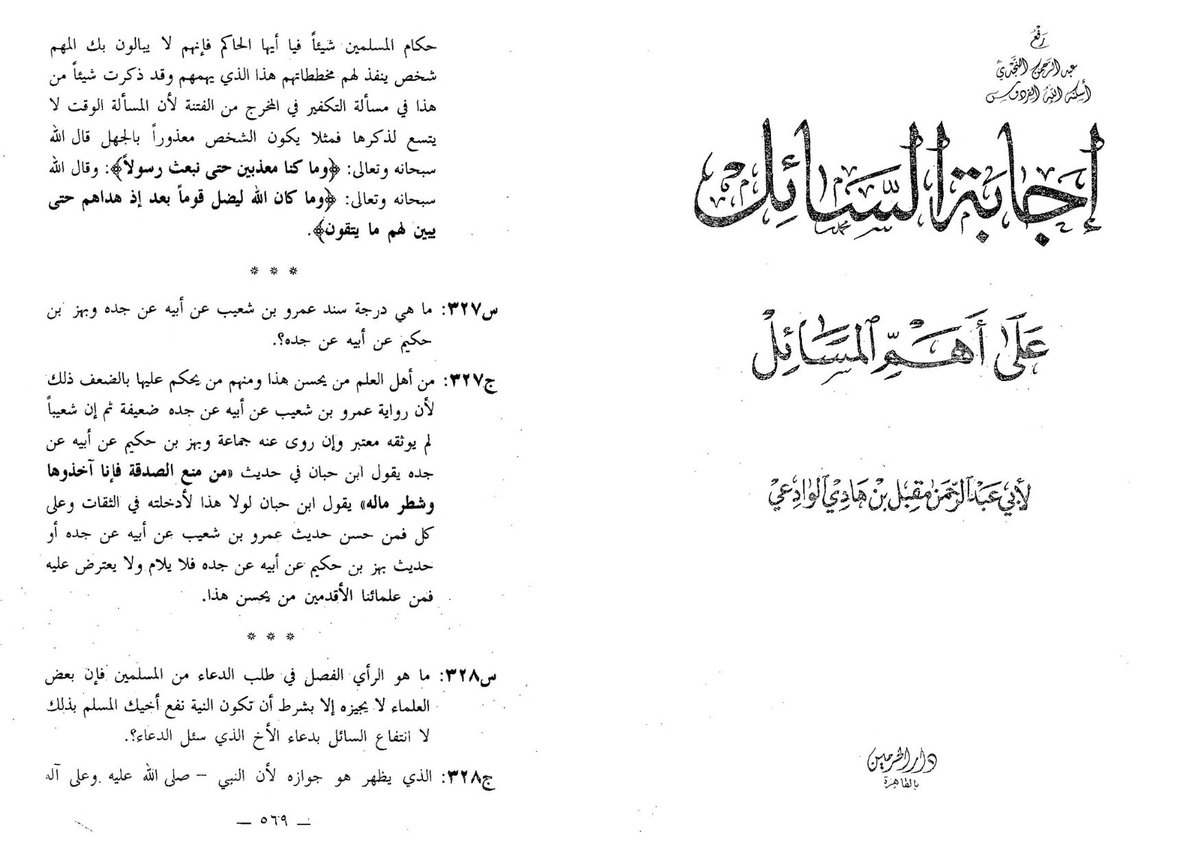 رَفْعُ
عبد الرحمن النجدي
أسكنه الله الفردوس
إجابة السائل
على أهم المسائل
لأبي عبد الرحمن مقبل بن هادي الوادعي
دار الحرمين
بالقاهرة
حكام المسلمين شيئاً فيا أيها الحاكم فإنهم لا يبالون بك المهم
شخص ينفذ لهم مخططاتهم هذا الذي يهمهم وقد ذكرت شيئاً من
هذا في مسألة التكفير في المخرج من الفتنة لأن المسألة الوقت لا
يتسع لذكرها فمثلا يكون الشخص معذوراً بالجهل قال الله
سبحانه وتعالى: ﴿وما كنا معذبين حتى نبعث رسولاً﴾: وقال الله
سبحانه وتعالى: ﴿وما كان الله ليضل قوماً بعد إذ هداهم حتى
يبين لهم ما يتقون﴾.
* * *
س٣٢٧: ما هي درجة سند عمرو بن شعيب عن أبيه عن جده وبهز بن
حكيم عن أبيه عن جده؟.
ج٣٢٧: من أهل العلم من يحسن هذا ومنهم من يحكم عليها بالضعف ذلك
لأن رواية عمرو بن شعيب عن أبيه عن جده ضعيفة ثم إن شعيباً
لم يوثقه معتبر وإن روى عنه جماعة وبهز بن حكيم عن أبيه عن
جده يقول ابن حبان في حديث «من منع الصدقة فإنا آخذوها
وشطر ماله» يقول ابن حبان لولا هذا لأدخلته في الثقات وعلى
كل فمن حسن حديث عمرو بن شعيب عن أبيه عن جده أو
حديث بهز بن حكيم عن أبيه عن جده فلا يلام ولا يعترض عليه
فمن علمائنا الأقدمين من يحسن هذا.
* * *
س٣٢٨: ما هو الرأي الفصل في طلب الدعاء من المسلمين فإن بعض
العلماء لا يجيزه إلا بشرط أن تكون النية نفع أخيك المسلم بذلك
لا انتفاع السائل بدعاء الأخ الذي سئل الدعاء؟.
ج٣٢٨: الذي يظهر هو جوازه لأن النبي – صلى الله عليه وعلى آله
— ٥٦٩ —